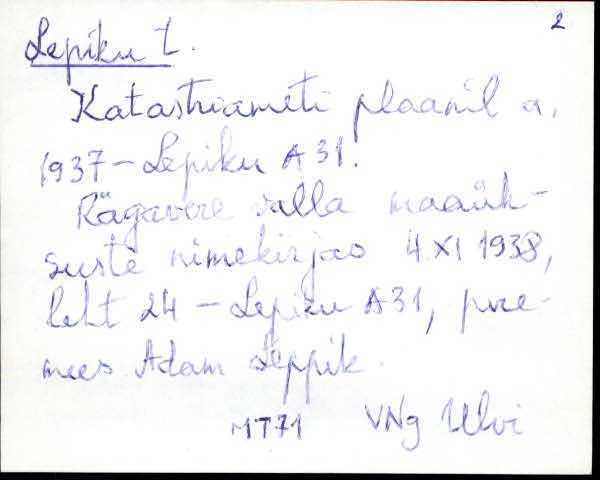 2
Lepiku t.
Katastriameti plaanil a.
1937 – Lepiku A 31.
Rägavere valla maaük-
suste nimekirjas 4 XI 1938,
leht 24 – Lepiku A31, pere-
mees Adam Leppik.
MT71 VNg Ulvi